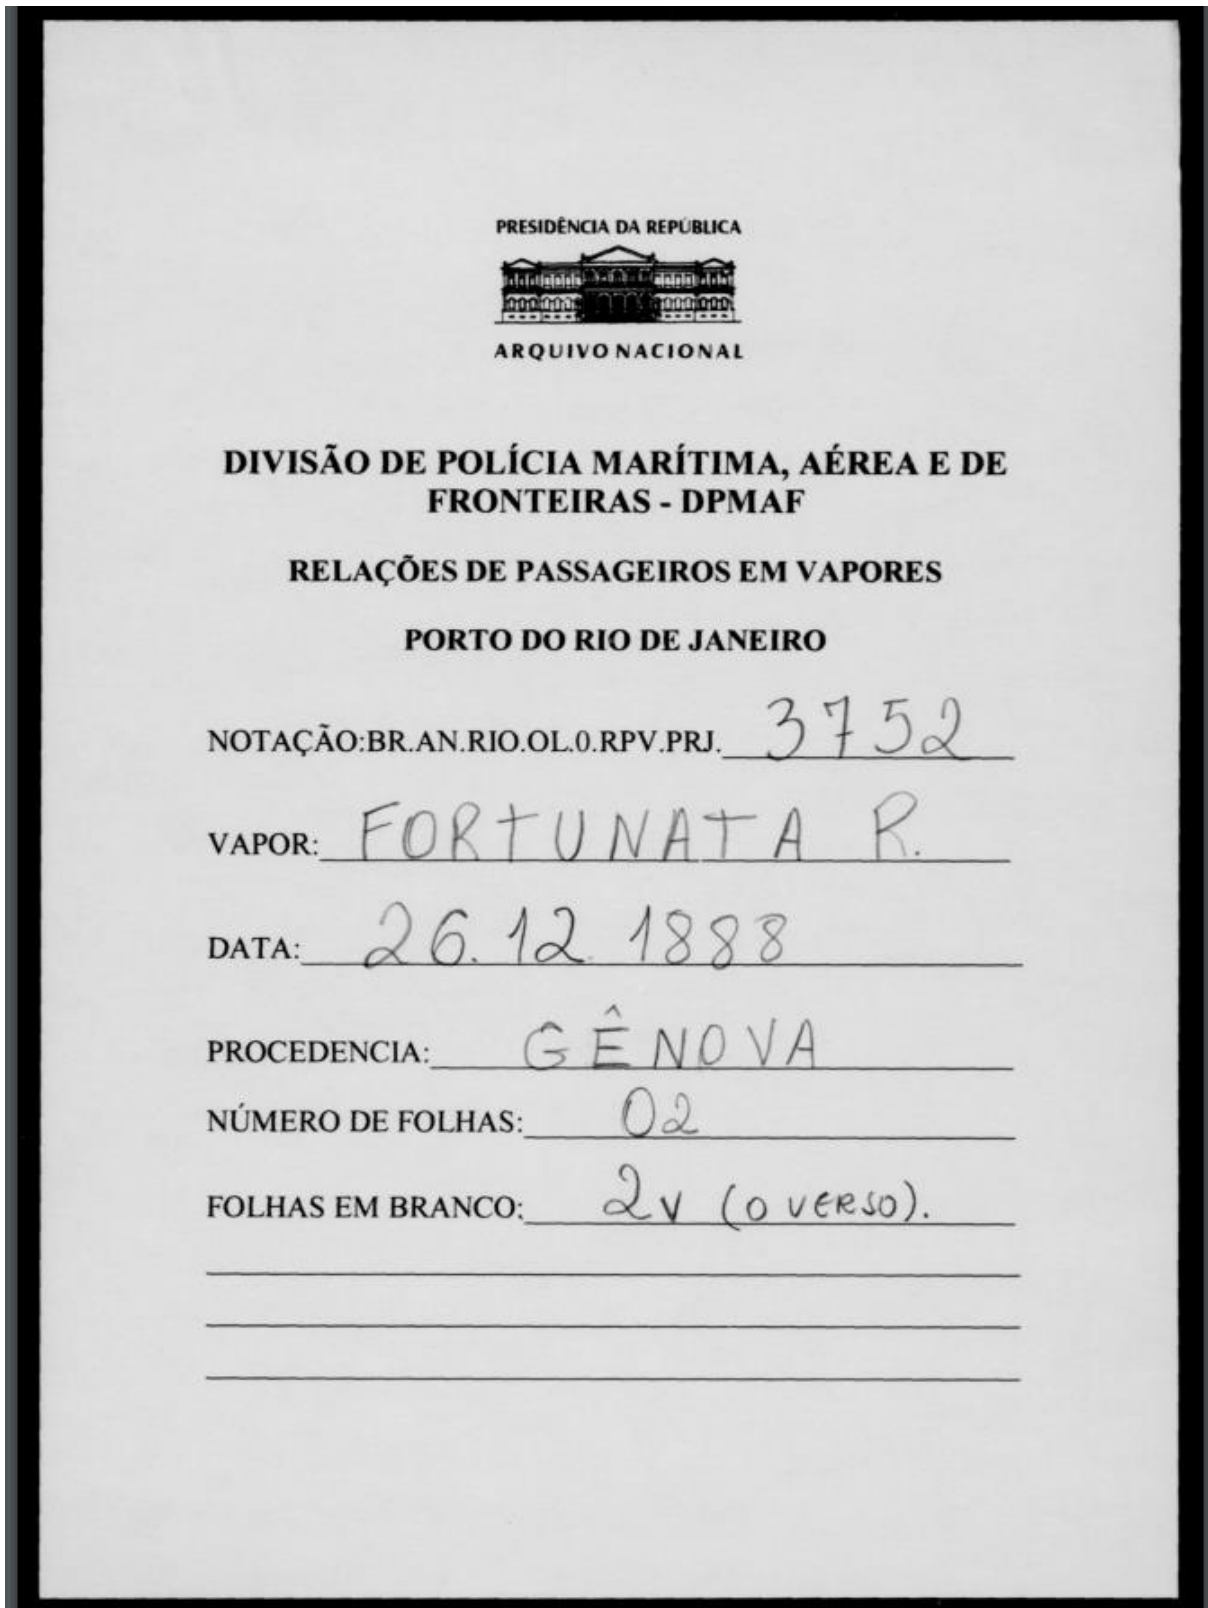 PRESIDÊNCIA DA REPÚBLICA
ARQUIVO NACIONAL
DIVISÃO DE POLÍCIA MARÍTIMA, AÉREA E DE
FRONTEIRAS - DPMAF
RELAÇÕES DE PASSAGEIROS EM VAPORES
PORTO DO RIO DE JANEIRO
NOTAÇÃO:BR.AN.RIO.OL.0.RPV.PRJ. 3752
VAPOR: FORTUNATA R.
DATA: 26.12.1888
PROCEDENCIA: GÊNOVA
NÚMERO DE FOLHAS: 02
FOLHAS EM BRANCO: 2v (O VERSO).